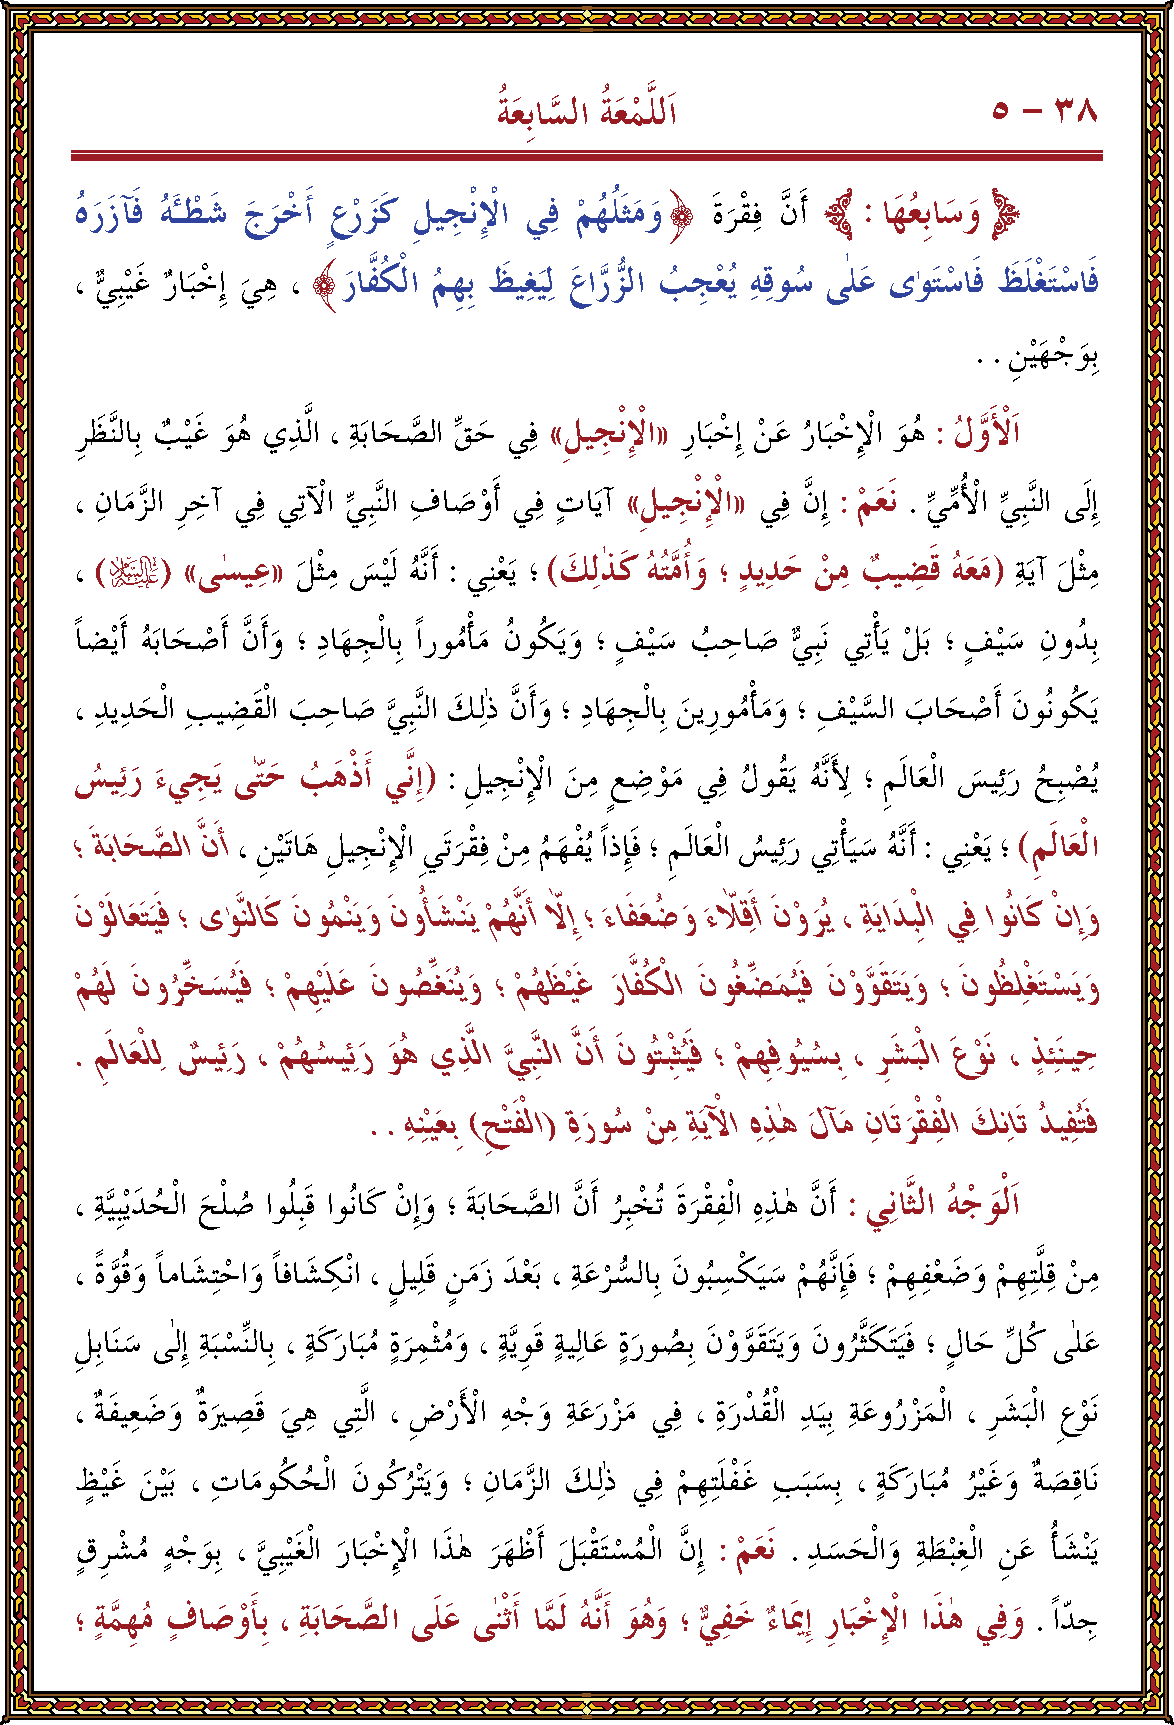 ٣٨ – ٥ اَللَّمْعَةُ السَّابِعَةُ
﴿ وَسَابِعُهَا : ﴾ أَنَّ فِقْرَةَ ﴿وَمَثَلُهُمْ فِي الْإِنْجِيلِ كَزَرْعٍ أَخْرَجَ شَطْـَٔهُ فَآزَرَهُ
فَاسْتَغْلَظَ فَاسْتَوٰى عَلٰى سُوقِهِ يُعْجِبُ الزُّرَّاعَ لِيَغِيظَ بِهِمُ الْكُفَّارَ﴾ ، هِيَ إِخْبَارٌ غَيْبِيٌّ ،
بِوَجْهَيْنِ . .
اَلْأَوَّلُ : هُوَ الْإِخْبَارُ عَنْ إِخْبَارِ «الْإِنْجِيلِ» فِي حَقِّ الصَّحَابَةِ ، الَّذِي هُوَ غَيْبٌ بِالنَّظَرِ
إِلَى النَّبِيِّ الْأُمِّيِّ . نَعَمْ : إِنَّ فِي «الْإِنْجِيلِ» آيَاتٍ فِي أَوْصَافِ النَّبِيِّ الْآتِي فِي آخِرِ الزَّمَانِ ،
مِثْلَ آيَةِ (مَعَهُ قَضِيبٌ مِنْ حَدِيدٍ ؛ وَأُمَّتُهُ كَذٰلِكَ) ؛ يَعْنِي : أَنَّهُ لَيْسَ مِثْلَ «عِيسٰى» (عَلَيْهِ السَّلَامُ) ،
بِدُونِ سَيْفٍ ؛ بَلْ يَأْتِي نَبِيٌّ صَاحِبُ سَيْفٍ ؛ وَيَكُونُ مَأْمُوراً بِالْجِهَادِ ؛ وَأَنَّ أَصْحَابَهُ أَيْضاً
يَكُونُونَ أَصْحَابَ السَّيْفِ ؛ وَمَأْمُورِينَ بِالْجِهَادِ ؛ وَأَنَّ ذٰلِكَ النَّبِيَّ صَاحِبَ الْقَضِيبِ الْحَدِيدِ ،
يُصْبِحُ رَئِيسَ الْعَالَمِ ؛ لِأَنَّهُ يَقُولُ فِي مَوْضِعٍ مِنَ الْإِنْجِيلِ : (إِنَّنِي أَذْهَبُ حَتّٰى يَجِيءَ رَئِيسُ
الْعَالَمِ) ؛ يَعْنِي : أَنَّهُ سَيَأْتِي رَئِيسُ الْعَالَمِ ؛ فَإِذاً يُفْهَمُ مِنْ فِقْرَتَيِ الْإِنْجِيلِ هَاتَيْنِ ، أَنَّ الصَّحَابَةَ ؛
وَإِنْ كَانُوا فِي الْبِدَايَةِ ، يُرَوْنَ أَقِلَّاءَ وَضُعَفَاءَ ؛ إِلَّا أَنَّهُمْ يَنْشَأُونَ وَيَنْمُونَ كَالنَّوٰى ؛ فَيَتَعَالَوْنَ
وَيَسْتَغْلِظُونَ ؛ وَيَتَقَوَّوْنَ فَيُمَضِّغُونَ الْكُفَّارَ غَيْظَهُمْ ؛ وَيُنَغِّصُونَ عَلَيْهِمْ ؛ فَيُسَخِّرُونَ لَهُمْ
حِينَئِذٍ ، نَوْعَ الْبَشَرِ ، بِسُيُوفِهِمْ ؛ فَيُثْبِتُونَ أَنَّ النَّبِيَّ الَّذِي هُوَ رَئِيسُهُمْ ، رَئِيسٌ لِلْعَالَمِ .
فَتُفِيدُ تَانِكَ الْفِقْرَتَانِ مَآلَ هٰذِهِ الْآيَةِ مِنْ سُورَةِ (الْفَتْحِ) بِعَيْنِهِ . .
اَلْوَجْهُ الثَّانِي : أَنَّ هٰذِهِ الْفِقْرَةَ تُخْبِرُ أَنَّ الصَّحَابَةَ ؛ وَإِنْ كَانُوا قَبِلُوا صُلْحَ الْحُدَيْبِيَّةِ ،
مِنْ قِلَّتِهِمْ وَضَعْفِهِمْ ؛ فَإِنَّهُمْ سَيَكْسِبُونَ بِالسُّرْعَةِ ، بَعْدَ زَمَنٍ قَلِيلٍ ، انْكِشَافاً وَاحْتِشَاماً وَقُوَّةً ،
عَلٰى كُلِّ حَالٍ ؛ فَيَتَكَثَّرُونَ وَيَتَقَوَّوْنَ بِصُورَةٍ عَالِيةٍ قَوِيَّةٍ ، وَمُثْمِرَةٍ مُبَارَكَةٍ ، بِالنِّسْبَةِ إِلٰى سَنَابِلِ
نَوْعِ الْبَشَرِ ، الْمَزْرُوعَةِ بِيَدِ الْقُدْرَةِ ، فِي مَزْرَعَةِ وَجْهِ الْأَرْضِ ، الَّتِي هِيَ قَصِيرَةٌ وَضَعِيفَةٌ ،
نَاقِصَةٌ وَغَيْرُ مُبَارَكَةٍ ، بِسَبَبِ غَفْلَتِهِمْ فِي ذٰلِكَ الزَّمَانِ ؛ وَيَتْرُكُونَ الْحُكُومَاتِ ، بَيْنَ غَيْظٍ
يَنْشَأُ عَنِ الْغِبْطَةِ وَالْحَسَدِ . نَعَمْ : إِنَّ الْمُسْتَقْبَلَ أَظْهَرَ هٰذَا الْإِخْبَارَ الْغَيْبِيَّ ، بِوَجْهٍ مُشْرِقٍ
جِدّاً . وَفِي هٰذَا الْإِخْبَارِ إِيمَاءٌ خَفِيٌّ ؛ وَهُوَ أَنَّهُ لَمَّا أَثْنٰى عَلَى الصَّحَابَةِ ، بِأَوْصَافٍ مُهِمَّةٍ ؛